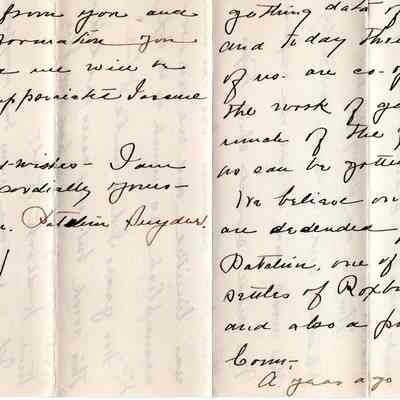 from you and
formation you
me will be
appreciate I assure
wishes - I am
cordially yours -
Patchin Snyder.
getting data of
and today three
of us. are co-op
the work of ga
much of the g
as can be gotte
We believe ou
are desended
Patchin, one of
settles of Roxb
and also a p
Conn-
A years ago